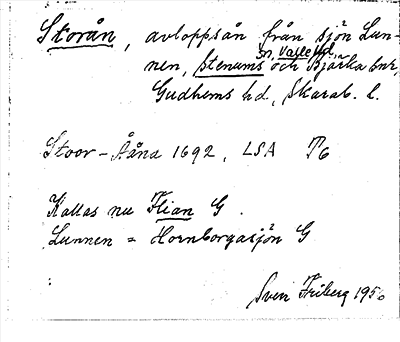 Storån, avloppsån från sjön Lun-
sn, Valle hd,
nen, Stenums och Bjärka snr,
Gudhems hd., Skarab. l.
Stoor-Åäna 1692, LSA T6
Kallas nu Flian G.
Lunnen = Hornborgasjön G
Sven Friberg 1956